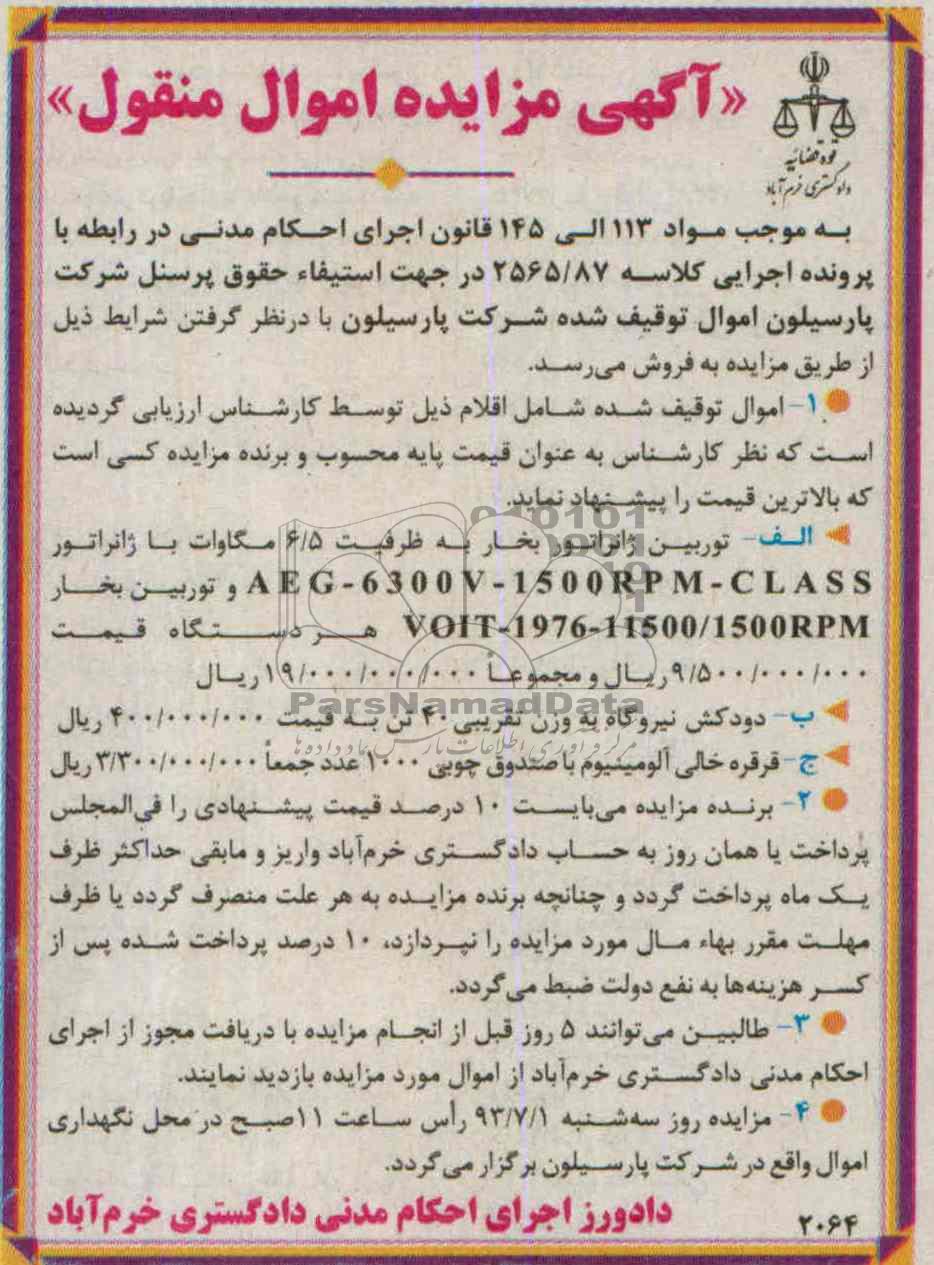 «آگهی مزایده اموال منقول»
قوه قضائیه
دادگستری خرم‌آباد
به موجب مواد ۱۱۳ الی ۱۴۵ قانون اجرای احکام مدنی در رابطه با
پرونده اجرایی کلاسه ۲۵۶۵/۸۷ در جهت استیفاء حقوق پرسنل شرکت
پارسیلون اموال توقیف شده شرکت پارسیلون با درنظر گرفتن شرایط ذیل
از طریق مزایده به فروش می‌رسد.
۱- اموال توقیف شده شامل اقلام ذیل توسط کارشناس ارزیابی گردیده
است که نظر کارشناس به عنوان قیمت پایه محسوب و برنده مزایده کسی است
که بالاترین قیمت را پیشنهاد نماید.
الف- توربین ژانراتور بخار به ظرفیت ۶/۵ مگاوات با ژانراتور
AEG-6300V-1500RPM-CLASS و توربین بخار
VOIT-1976-11500/1500RPM هر دستگاه قیمت
۹/۵۰۰/۰۰۰/۰۰۰ ریال و مجموعاً ۱۹/۰۰۰/۰۰۰/۰۰۰ ریال
ParsNamadData
ب- دودکش نیروگاه به وزن تقریبی ۴۰ تن به قیمت ۴۰۰/۰۰۰/۰۰۰ ریال
مرکز فرآوری اطلاعات پارس نماد داده ها
ج- قرقره خالی آلومینیوم با صندوق چوبی ۱۰۰۰ عدد جمعاً ۳/۳۰۰/۰۰۰/۰۰۰ ریال
۲- برنده مزایده می‌بایست ۱۰ درصد قیمت پیشنهادی را فی‌المجلس
پرداخت یا همان روز به حساب دادگستری خرم‌آباد واریز و مابقی حداکثر ظرف
یک ماه پرداخت گردد و چنانچه برنده مزایده به هر علت منصرف گردد یا ظرف
مهلت مقرر بهاء مال مورد مزایده را نپردازد، ۱۰ درصد پرداخت شده پس از
کسر هزینه‌ها به نفع دولت ضبط می‌گردد.
۳- طالبین می‌توانند ۵ روز قبل از انجام مزایده با دریافت مجوز از اجرای
احکام مدنی دادگستری خرم‌آباد از اموال مورد مزایده بازدید نمایند.
۴- مزایده روز سه‌شنبه ۹۳/۷/۱ رأس ساعت ۱۱صبح در محل نگهداری
اموال واقع در شرکت پارسیلون برگزار می‌گردد.
دادورز اجرای احکام مدنی دادگستری خرم‌آباد
۲۰۶۴